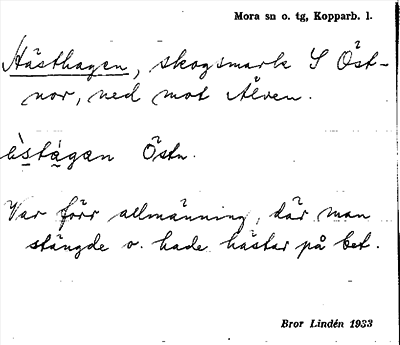 Mora sn o. tg, Kopparb. l.
Hästhagen, skogsmark S Öst-
nor, ned mot Älven.
ὲstàgan Östn.
Var förr allmänning, där man
stängde o. hade hästar på bet.
Bror Lindén 1933